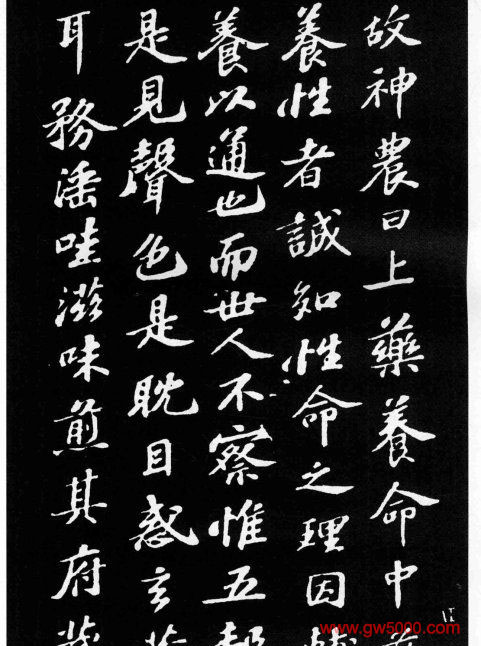 故神農曰上藥養命中
養性者誠知性命之理因
養以通也而世人不察惟五
是見聲色是耽目惑玄
耳務淫哇滋味煎其府
www.gw5000.com